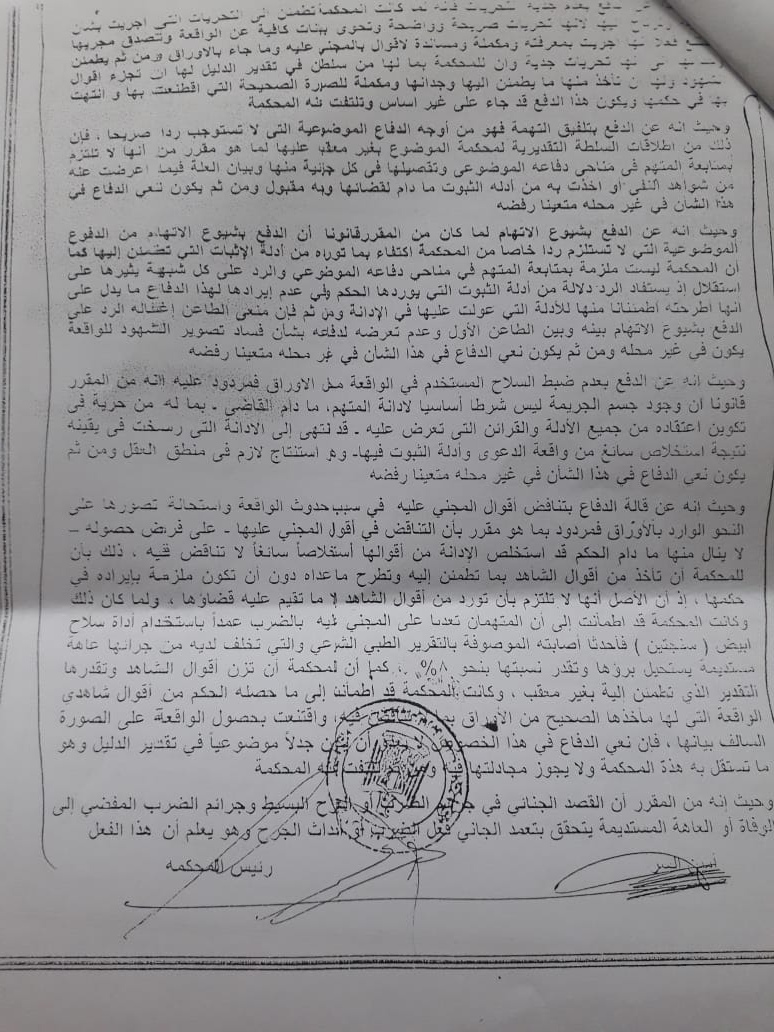 الدفع بعدم جدية التحريات فإنه لما كانت المحكمة تطمئن الى التحريات التى اجريت بشأن
لانها تحريات صريحة وواضحة وتحوى بينات كافية عن الواقعة وتصدق مجريها
اجريت بمعرفته ومكملة ومساندة لاقوال المجني عليه وما جاء بالاوراق ومن ثم يطمئن
تحريات جدية وان للمحكمة بما لها من سلطن في تقدير الدليل لها ان تجزء اقوال
شهود ولها ان تأخذ منها ما يطمئن اليها وجدانها ومكملة للصورة الصحيحة التى اقتنعت بها و انتهت
بها في حكمها ويكون هذا الدفع قد جاء على غير اساس وتلتفت نه المحكمة
وحيث انه عن الدفع بتلفيق التهمة فهو من أوجه الدفاع الموضوعية التى لا تستوجب ردا صريحا ، فإن
ذلك من اطلاقات السلطة التقديرية لمحكمة الموضوع بغير معقب عليها لما هو مقرر من أنها لا تلتزم
بمتابعة المتهم في مناحي دفاعه الموضوعى وتفصيلها فى كل جزئية منها وبيان العلة فيما اعرضت عنه
من شواهد النفى او اخذت به من أدله الثبوت ما دام لقضائها وبه مقبول ومن ثم يكون نعي الدفاع في
هذا الشأن في غير محله متعينا رفضه
وحيث انه عن الدفع بشيوع الاتهام لما كان من المقررقانونا أن الدفع بشيوع الاتهام من الدفوع
الموضوعية التي لا تستلزم ردا خاصا من المحكمة اكتفاء بما تورده من أدلة الإثبات التي تطمئن إليها كما
أن المحكمة ليست ملزمة بمتابعة المتهم في مناحي دفاعه الموضوعي والرد على كل شبهة يثيرها على
استقلال إذ يستفاد الرد دلالة من أدلة الثبوت التي يوردها الحكم وفي عدم إيرادها لهذا الدفاع ما يدل على
انها اطرحته اطمئنانا منها للأدلة التي عولت عليها في الإدانة ومن ثم فإن منعى الطاعن إغفاله الرد على
الدفع بشيوع الاتهام بينه وبين الطاعن الأول وعدم تعرضه لدفاعه بشأن فساد تصوير الشهود للواقعة
يكون في غير محله ومن ثم يكون نعي الدفاع في هذا الشأن في غير محله متعينا رفضه
وحيث انه عن الدفع بعدم ضبط السلاح المستخدم في الواقعة محل الاوراق فمردود عليه انه من المقرر
قانونا أن وجود جسم الجريمة ليس شرطا أساسيا لادانة المتهم، ما دام القاضى - بما له من حرية فى
تكوين اعتقاده من جميع الأدلة والقرائن التى تعرض عليه - قد نتهى إلى الادانة التى رسخت فى يقينه
نتيجة استخلاص سائغ من واقعة الدعوى وأدلة الثبوت فيها- وهو استنتاج لازم فى منطق العقل ومن ثم
يكون نعي الدفاع في هذا الشأن في غير محله متعينا رفضه
وحيث انه عن قالة الدفاع بتناقض أقوال المجني عليه في سبب حدوث الواقعة واستحالة تصورها على
النحو الوارد بالأوراق فمردود بما هو مقرر بأن التناقض في أقوال المجني عليها - على فرض حصوله -
لا ينال منها ما دام الحكم قد استخلص الإدانة من أقوالها أستخلاصاً سائغاً لا تناقض فيه ، ذلك بأن
للمحكمة أن تأخذ من أقوال الشاهد بما تطمئن إليه وتطرح ماعداه دون أن تكون ملزمة بإيراده في
حكمها ، إذ أن الأصل أنها لا تلتزم بأن تورد من أقوال الشاهد إلا ما تقيم عليه قضاؤها ، ولما كان ذلك
وكانت المحكمة قد اطمأنت إلى أن المتهمان تعديا على المجني عليه بالضرب عمداً باستخدام أداة سلاح
ابيض ( سنجتين ) فأحدثا أصابته الموصوفة بالتقرير الطبي الشرعي والتي تخلف لديه من جرائها عاهة
مستديمة يستحيل برؤها وتقدر نسبتها بنحو ٨% ، كما أن لمحكمة أن تزن أقوال الشاهد وتقدرها
التقدير الذي تطمئن إلية بغير معقب ، وكانت المحكمة قد اطمأنت إلى ما حصله الحكم من أقوال شاهدي
الواقعة التي لها مأخذها الصحيح من الأوراق بما لا تناقض فيه، واقتنعت بحصول الواقعة على الصورة
السالف بيانها ، فإن نعي الدفاع في هذا الخصوص لا يعدو أن يكون جدلاً موضوعياً في تقدير الدليل وهو
ما تستقل به هذة المحكمة ولا يجوز مجادلتها فيه وتلتفت عنه المحكمة
وحيث إنه من المقرر أن القصد الجنائي في جرائم الضرب أو الجرح البسيط وجرائم الضرب المفضي إلى
الوفاة أو العاهة المستديمة يتحقق بتعمد الجاني فعل الضرب أو أحداث الجرح وهو يعلم أن هذا الفعل
أمين السر
رئيس المحكمه